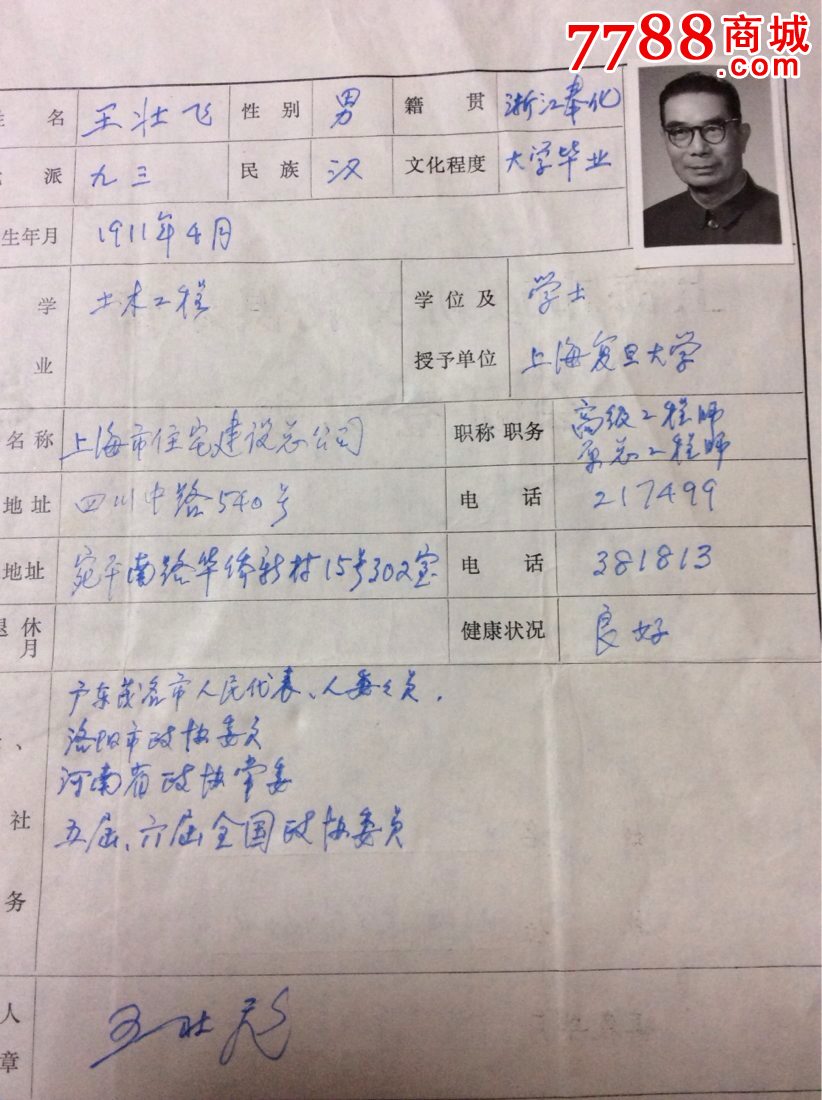 7788商城
.com
姓 名 王壮飞 性 别 男 籍 贯 浙江奉化
派 九三 民 族 汉 文化程度 大学毕业
生年月 1911年4月
学 土木工程 学 位 及 学士
业 授予单位 上海复旦大学
名 称 上海市住宅建设总公司 职称 职务 高级工程师
原总工程师
地 址 四川中路540号 电 话 217499
地址 宛平南路华侨新村15号302室 电 话 381813
退 休
月 健康状况 良好
广东茂名市人民代表、人委委员.
、 洛阳市政协委员
河南省政协常委
社 五届、六届全国政协委员
务
人 王壮飞
章